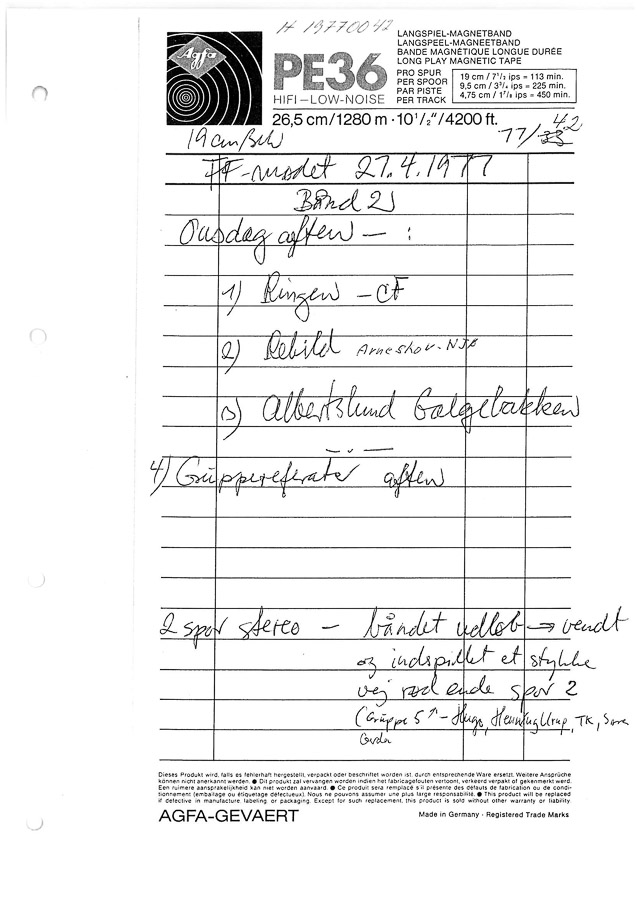 H 19770042
Agfa
PE36
HIFI–LOW–NOISE
LANGSPIEL-MAGNETBAND
LANGSPEEL-MAGNEETBAND
BANDE MAGNÉTIQUE LONGUE DURÉE
LONG PLAY MAGNETIC TAPE
PRO SPUR
PER SPOOR
PAR PISTE
PER TRACK
19 cm / 7 1/2 ips = 113 min.
9,5 cm / 3 3/4 ips = 225 min.
4,75 cm / 1 7/8 ips = 450 min.
26,5 cm/1280 m · 10 1/2"/4200 ft.
77/33 42
19 cm/sek
FF-mødet 27.4.1977
Bånd 2)
Onsdag aften — :
1) Ringen – CF
2) Rebild Arneskov - NJA
3) Albertslund Galgebakken
4) Grupperefater aften
2 spor stereo – båndet udløb → vendt
og indspillet et stykke
vej rød ende spor 2
(Gruppe 5 – Hugo, Henning Urup, TK,
Gerda
Dieses Produkt wird, falls es fehlerhaft hergestellt, verpackt oder beschriftet worden ist, durch entsprechende Ware ersetzt. Weitere Ansprüche
können nicht anerkannt werden. ● Dit produkt zal vervangen worden indien het fabricagefouten vertoont, verkeerd verpakt of gekenmerkt werd.
Een ruimere aansprakelijkheid kan niet worden aanvaard. ● Ce produit sera remplacé s'il présente des défauts de fabrication ou de condi-
tionnement (emballage ou étiquetage défectueux). Nous ne pouvons assumer une plus large responsabilité. ● This product will be replaced
if defective in manufacture, labeling or packaging. Except for such replacement, this product is sold without other warranty or liability.
AGFA-GEVAERT
Made in Germany · Registered Trade Marks